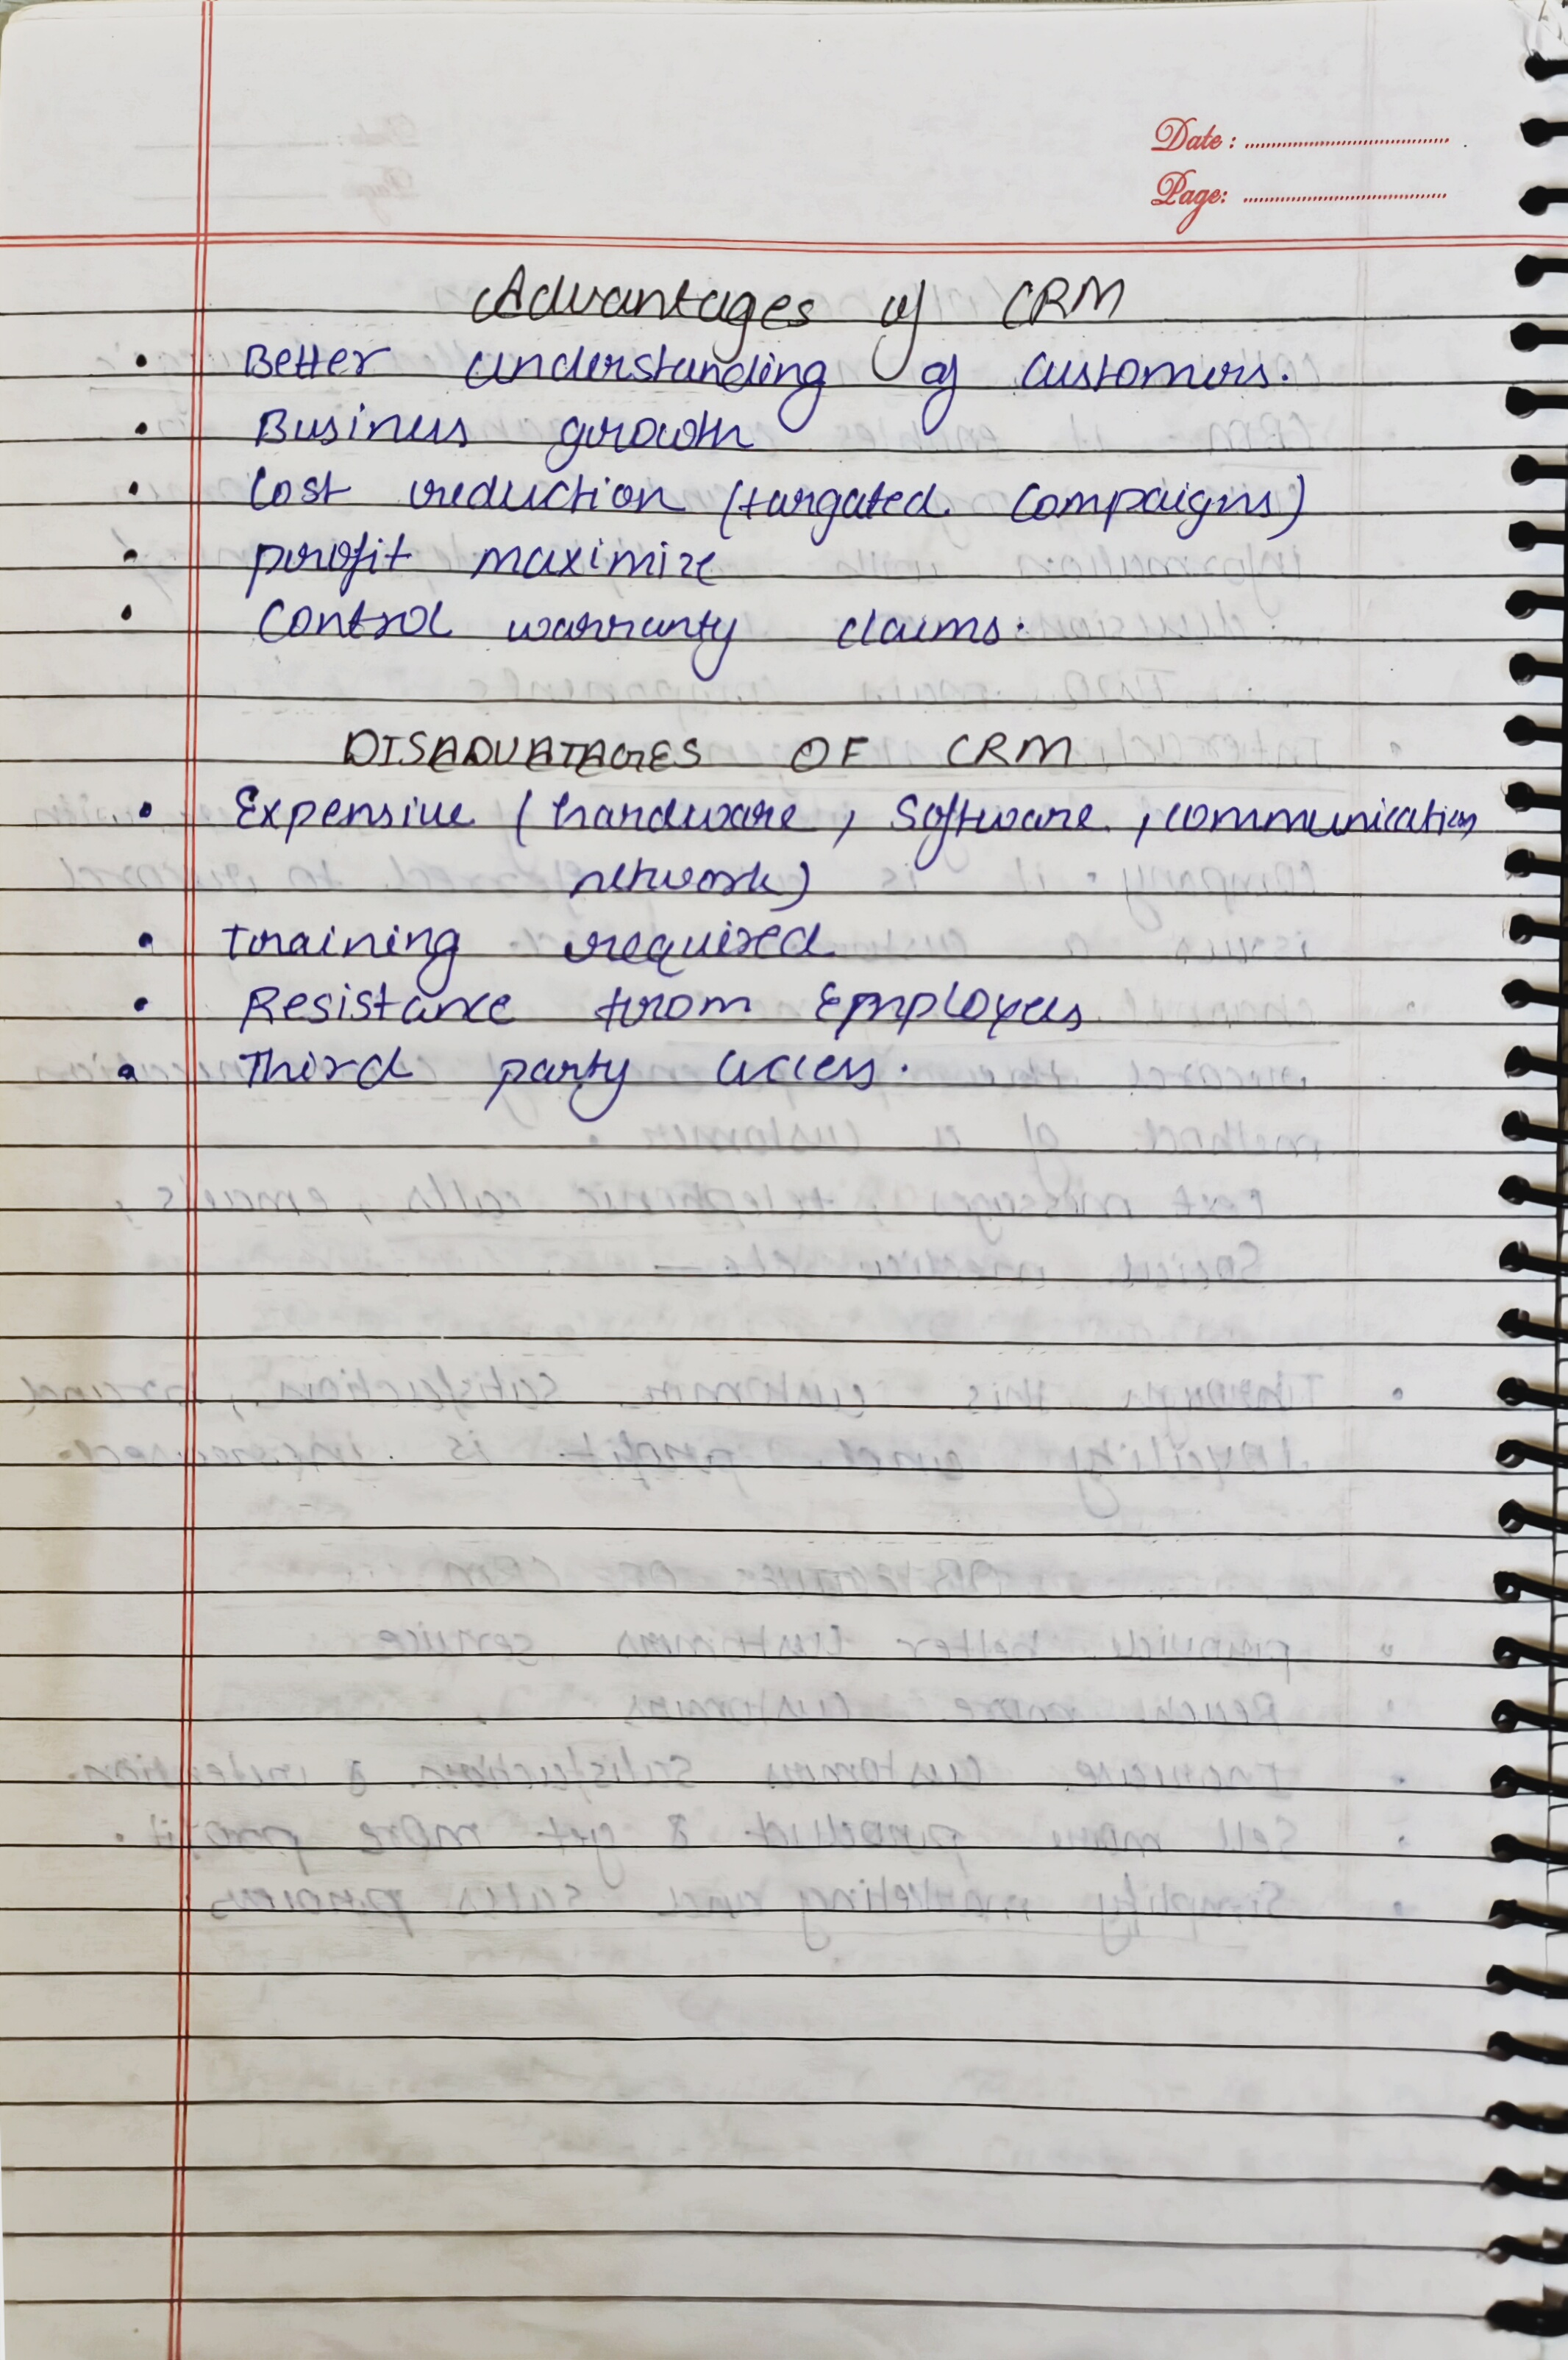 Date :
Page:
Advantages of CRM
• Better understanding of customers.
• Business growth
• Cost reduction (targated compaigns)
• profit maximize
• Control warranty claims.
DISADVATAGES OF CRM
• Expensive (hardware, Software, communication
network)
• training required
• Resistance from Employees
• Third party access.